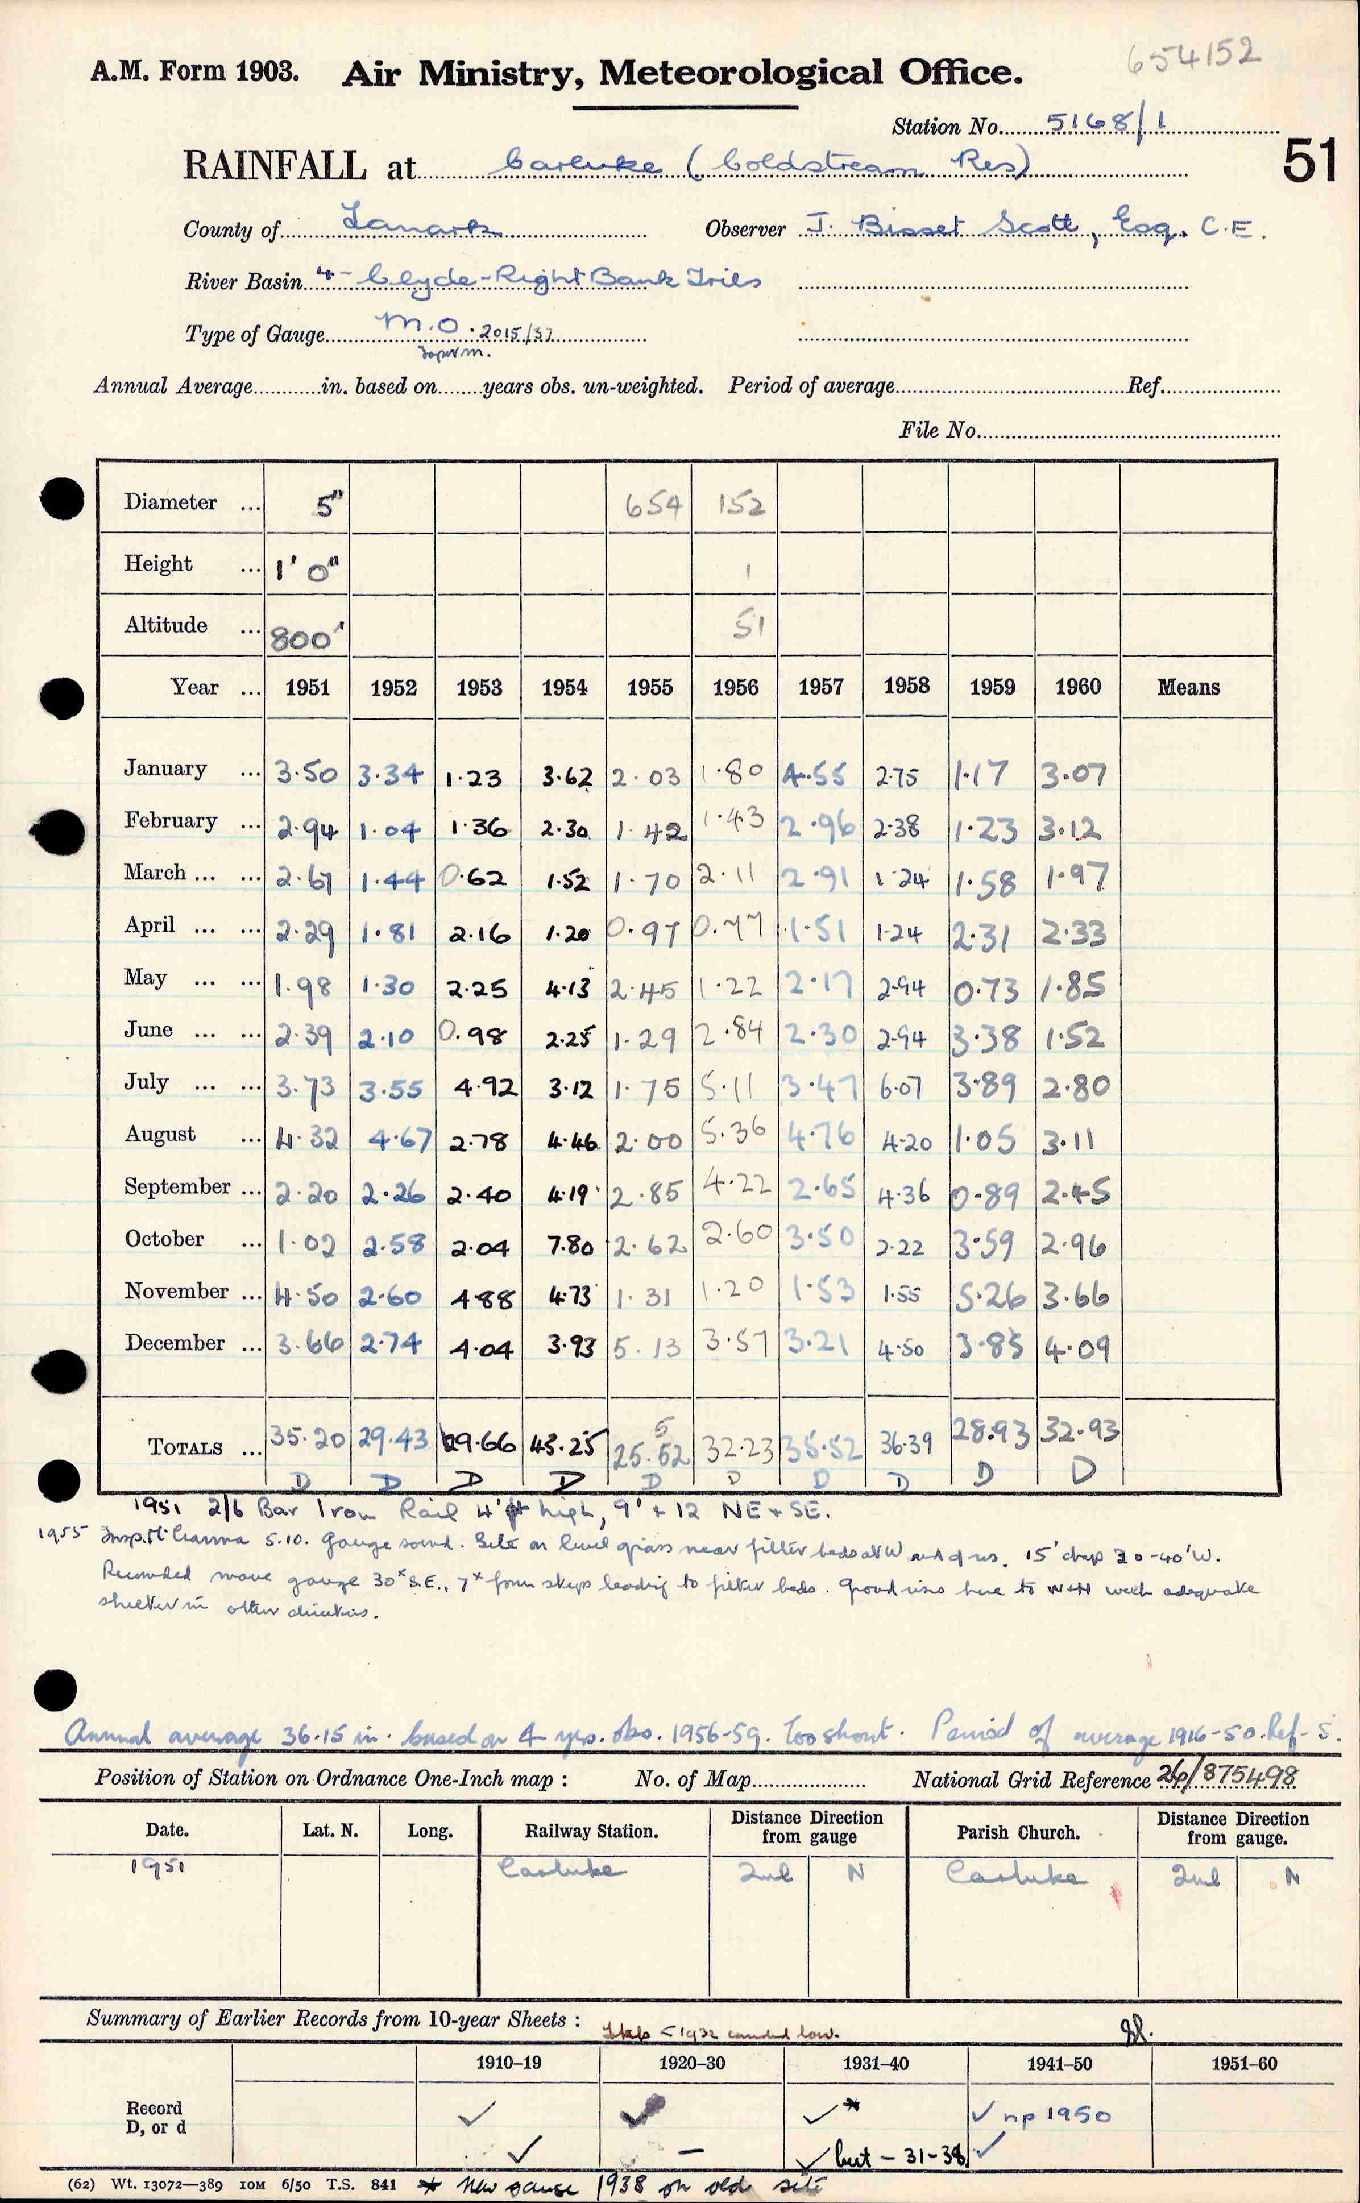 654152
A.M. Form 1903. Air Ministry, Meteorological Office.
Station No. 5168/1
RAINFALL at Carluke (Coldstream Res) 51
County of Lanark Observer J. Bisset Scott, Esq. C.E.
River Basin 4- Clyde-Right Bank Tribs
Type of Gauge M.O. 2015/37
Annual Average in. based on years obs. un-weighted. Period of average Ref.
File No.
Diameter ... 5" 654 152
Height ... 1' 0" 1
Altitude ... 800' 51
Year ... 1951 1952 1953 1954 1955 1956 1957 1958 1959 1960 Means
January ... 3.50 3.34 1.23 3.62 2.03 1.80 4.55 2.75 1.17 3.07
February ... 2.94 1.04 1.36 2.30 1.42 1.43 2.96 2.38 1.23 3.12
March ... ... 2.67 1.44 0.62 1.52 1.70 2.11 2.91 1.24 1.58 1.97
April ... ... 2.29 1.81 2.16 1.20 0.97 0.77 1.51 1.24 2.31 2.33
May ... ... 1.98 1.30 2.25 4.13 2.45 1.22 2.17 2.94 0.73 1.85
June ... ... 2.39 2.10 0.98 2.25 1.29 2.84 2.30 2.94 3.38 1.52
July ... ... 3.73 3.55 4.92 3.12 1.75 5.11 3.47 6.07 3.89 2.80
August ... 4.32 4.67 2.78 4.46 2.00 5.36 4.76 4.20 1.05 3.11
September ... 2.20 2.26 2.40 4.19 2.85 4.22 2.65 4.36 0.89 2.45
October ... 1.02 2.58 2.04 7.80 2.62 2.60 3.50 2.22 3.59 2.96
November ... 4.50 2.60 4.88 4.73 1.31 1.20 1.53 1.55 5.26 3.66
December ... 3.66 2.74 4.04 3.93 5.13 3.57 3.21 4.50 3.85 4.09
5
TOTALS ... 35.20 29.43 29.66 43.25 25.52 32.23 35.52 36.39 28.93 32.93
D D D D D D D D D D
1951 2/6 Bar Iron Rail 4' high, 9' + 12 NE + SE.
1955 Insp. 5.10. Gauge sound. Site on level grass near filter beds at W and of res. 15' drop 30-40' W.
Recommended move gauge 30" S.E., 7" from steps leading to filter beds. Ground rises here to W+N with adequate
shelter in other directions.
Annual average 36.15 in. based on 4 yrs. obs. 1956-59. Too short. Period of average 1916-50. Ref- S.
Position of Station on Ordnance One-Inch map : No. of Map National Grid Reference 26/875498
Date. Lat. N. Long. Railway Station. Distance Direction from gauge Parish Church. Distance Direction from gauge.
1951 Carluke 2ml N Carluke 2ml N
Summary of Earlier Records from 10-year Sheets : <1932 low.
1910-19 1920-30 1931-40 1941-50 1951-60
Record ✓ ✓ ✓* ✓ np 1950
D, or d ✓ — ✓ but - 31-38 ✓
(62) Wt. 13072—389 10M 6/50 T.S. 841 * New gauge 1938 on old site